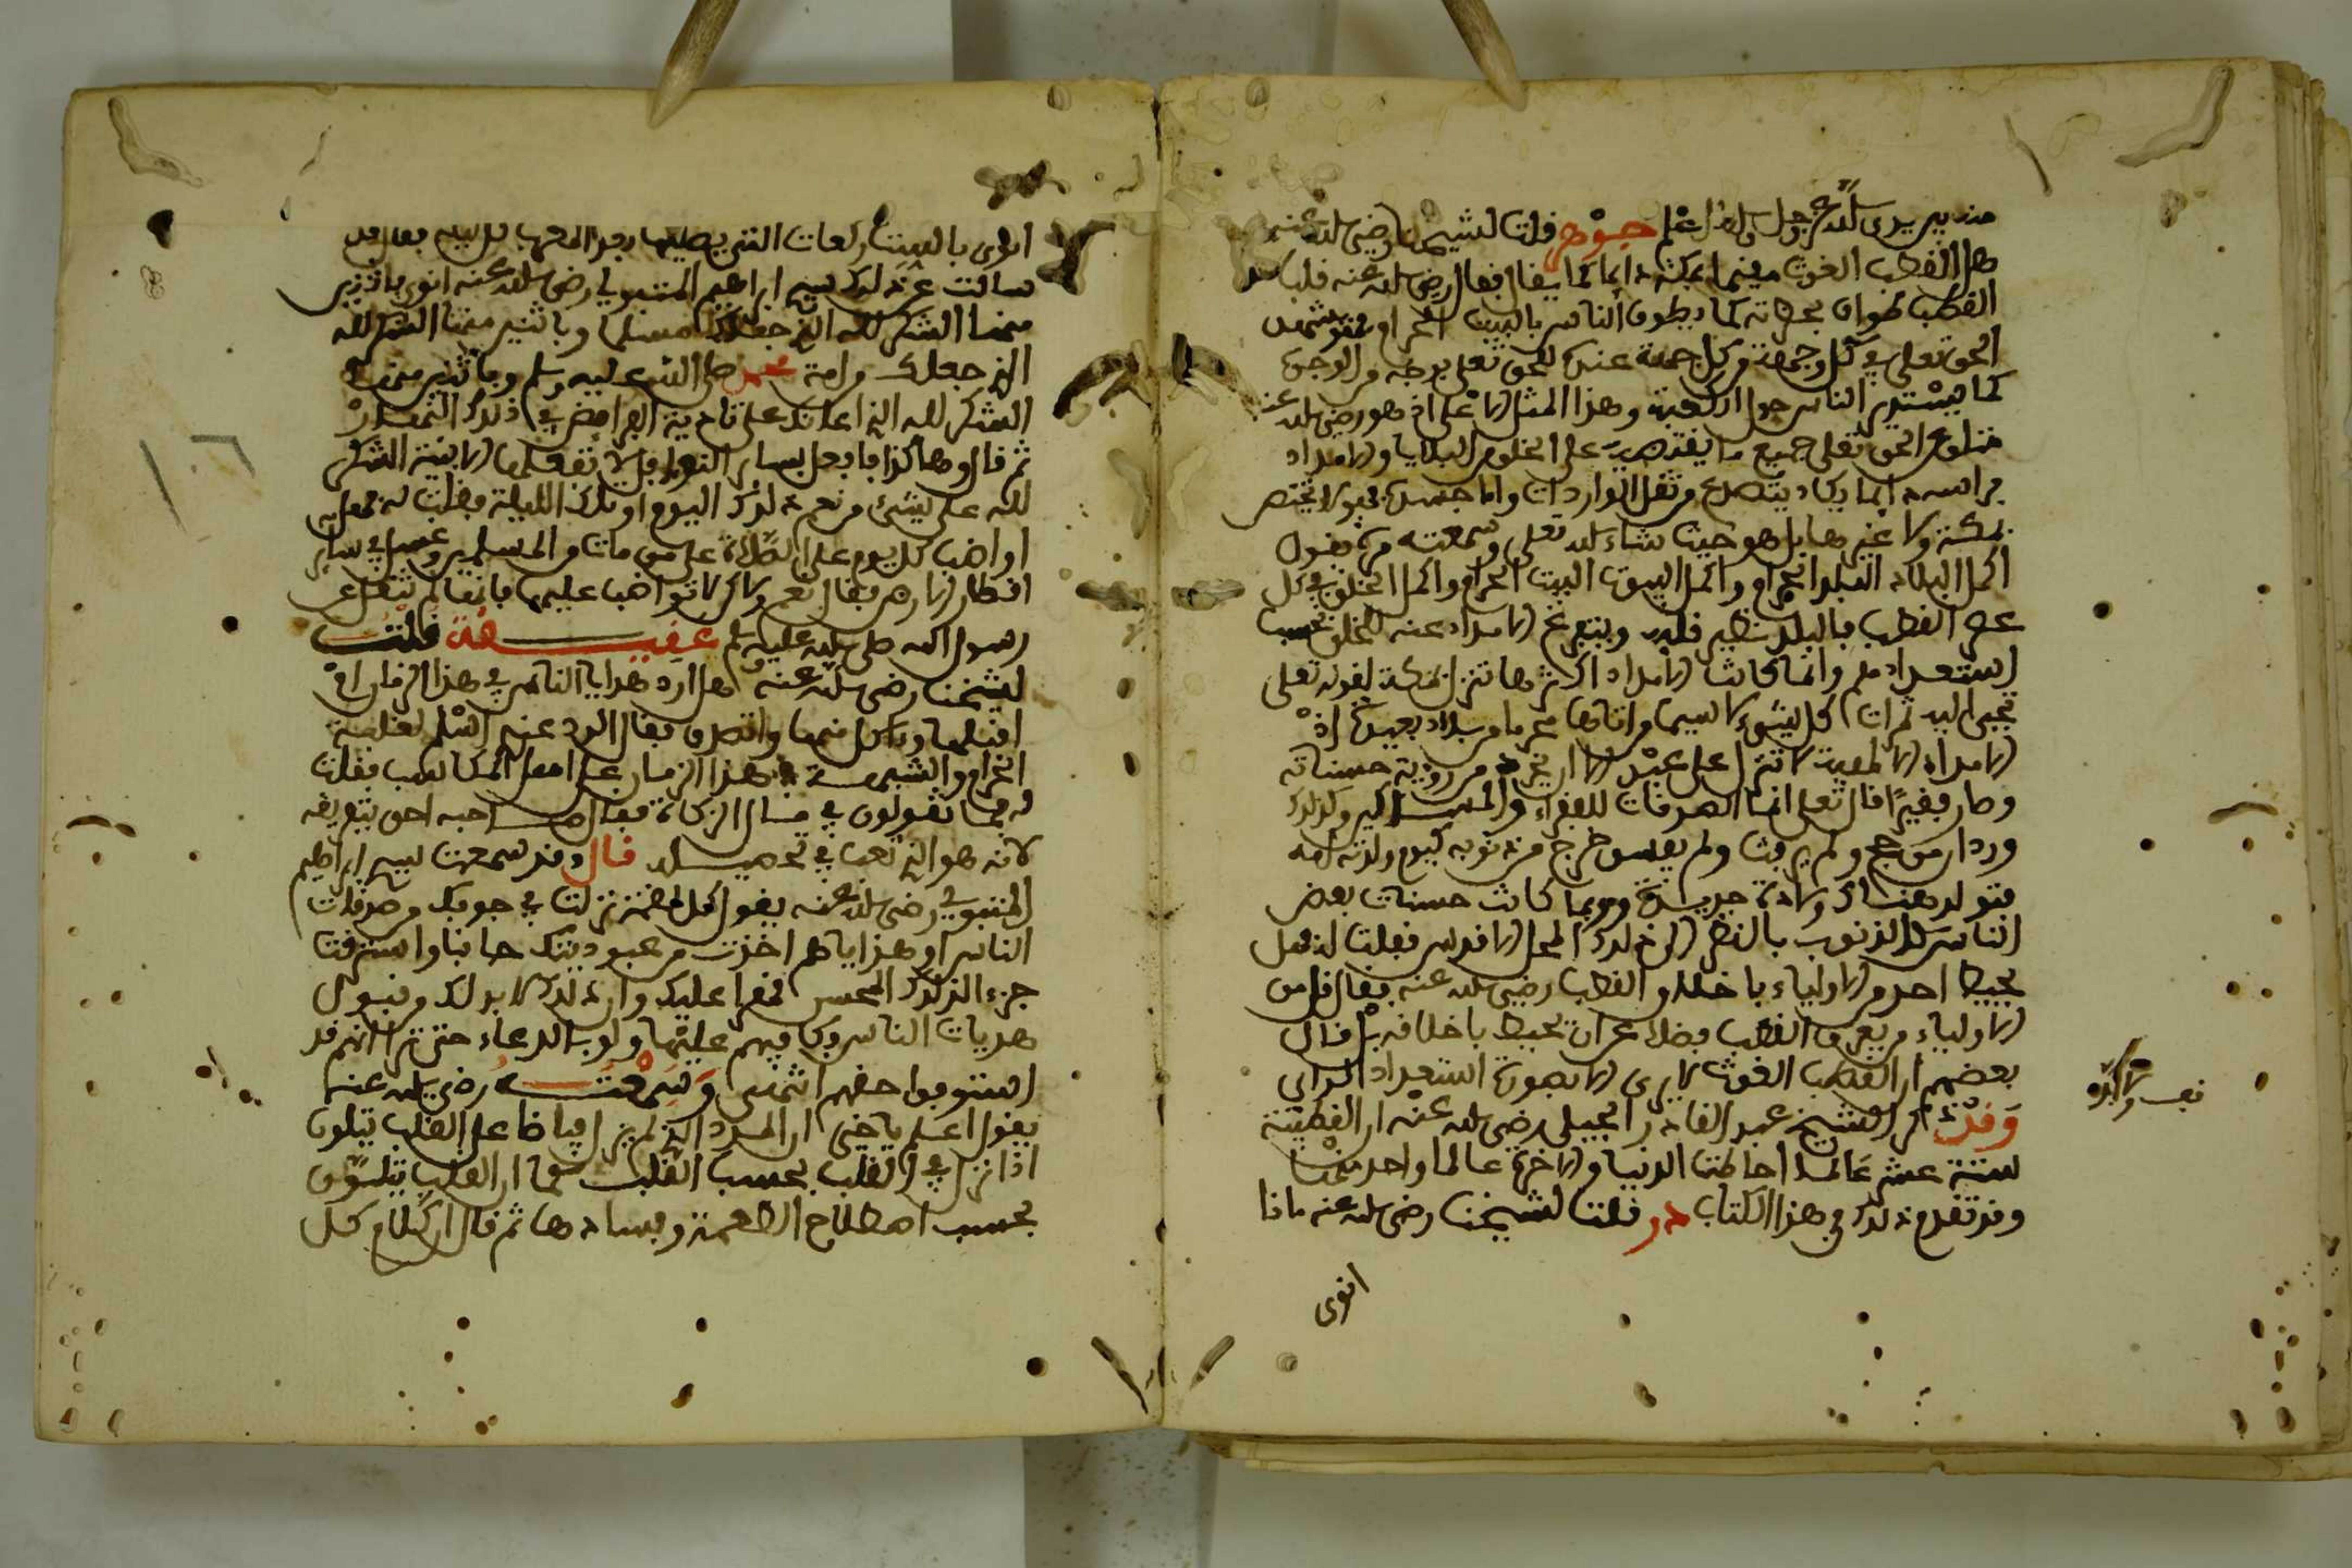 منه بين يدي الله عز وجل والله اعلم جوهر قلت لشيخنا رضي الله عنه
هل القطب الغوث مقيم بمكة دائما كما يقال فقال رضي الله عنه قلب
القطب طواف بحضرته كما يطوف الناس بالبيت الحرام فهو يشهد
الحق تعلى في كل وجهة ومن كل جهة عند الحق تعلى بوجه من الوجوه
كما يستدير الناس حول الكعبة وهذا المثل الاعلى اذ هو رضي الله عنه
متلق عن الحق تعلى جميع ما يفيضه على الخلق من البلايا والامداد
فراسه دائما يكاد يتصدع من ثقل الواردات واما جسده فهو لا يختص
بمكة ولا غيرها بل هو حيث شاء الله تعلى وسمعته مرة يقول
اكمل البلاد البلد الحرام واكمل البيوت البيت الحرام واكمل الخلق في كل
عصر القطب فالبلد نظير قلبه ويتفرع الامداد عنه للخلق بحسب
استعدادهم وانما كانت الامداد اكثرها تنزل بمكة لقوله تعلى
تجبى اليه ثمرات كل شيء لا سيما من اتاها محرما من بلاد بعيدة اذ
الامداد الالهية لا تنزل على عبد الا ان تجرد من رؤية حسناته
وصار فقيرا قال تعلى انما الصدقات للفقراء والمساكين وكذلك
ورد ان من حج ولم يرفث ولم يفسق خرج من ذنوبه كيوم ولدته امه
فتولد هناك ولادة جديدة وربما كانت حسنات بعض
الناس كالذنوب بالنظر الى ذلك المحل الاقدس فقلت له فهل
يحيط احد من الاولياء باخلاق القطب رضي الله عنه فقال قل من
الاولياء من يعرف القطب فضلا عن ان يحيط باخلاقه بل قال
بعضهم ان القطب الغوث لا يرى الا بصورة استعداد الرائي
وقد ذكر الشيخ عبد القادر الجيلي رضي الله عنه ان للقطبية
ستة عشر عالما احاطت الدنيا والاخرة عالما واحد منها
وقد تقدم ذلك في هذا الكتاب در قلت لشيخنا رضي الله عنه ماذا
انوى
انوى بالست ركعات التي يصليها بعد المغرب كل ليلة فقال قد
سالت عن ذلك سيدي ابراهيم المتبولي رضي الله عنه انوى باثنين
منها الشكر لله الذي جعلك مسلما وباثنين منها الشكر لله
الذي جعلك من امة محمد صلى الله عليه وسلم وباثنين منها
الشكر لله الذي اعانك على تادية الفرائض في ذلك النهار
ثم قال وهاكذا فافعل بسائر النوافل لا تفعلها الا بنية الشكر
لله على شيء من نعمه ذلك اليوم او تلك الليلة فقلت له فهل
اواضب كل يوم على الصلاة على من مات من المسلمين وغسل في سائر
اقطار الارض فقال نعم ولاكن لا تواضب عليها فانها لم تنقل عن
رسول الله صلى الله عليه وسلم عقيقة قلت
لشيخنا رضي الله عنه هل ارد هدايا الناس في هذا الزمان او
اقبلها وءاكل منها واتصدق فقال الرد عنه اسلم لغلبة
الحرام والشبهة في هذا الزمان على اهل المكاسب فقلت
له فما تقولون في مال الزكاة فقال صاحبه احق بتفريقه
لانه هو الذي تعب في تحصيله قال وقد سمعت سيدي ابراهيم
المتبولي رضي الله عنه يقول كل لقمة نزلت في جوفك من صدقات
الناس او هداياهم اخذت من عبوديتك جانبا واسترقت
جزء الذلك المحسن قهرا عليك وان ذلك لا بد لك من قبول
هديات الناس وكافهم عليها ولو بالدعاء حتى ترا انهم قد
استوفوا حقهم انتهى وسمعته رضي الله عنه
يقول اعلم يا خي ان المدد الذي لم يزل فياضا على القلب يتلون
اذا نزل في القلب بحسب القلب كما ان القلب يتلون
بحسب اصطلاح الطعمة وفسادها ثم قال ان كلام كل